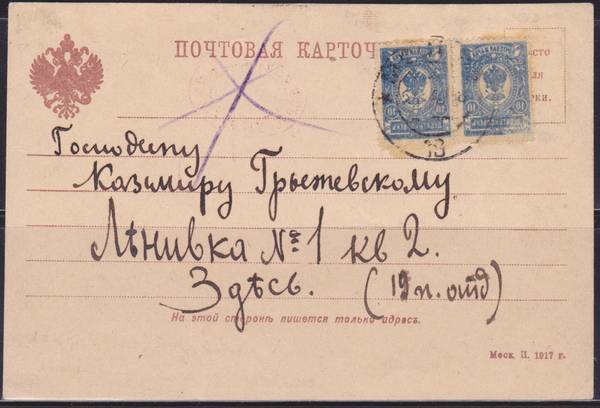 ПОЧТОВАЯ КАРТОЧ
сто
ля
рки.
13
Господину
Казимиру Грыжевскому
Лѣнивка № 1 кв 2.
Здѣсь. (19 п. отд)
На этой сторонѣ пишется только адресъ.
Моск. П. 1917 г.